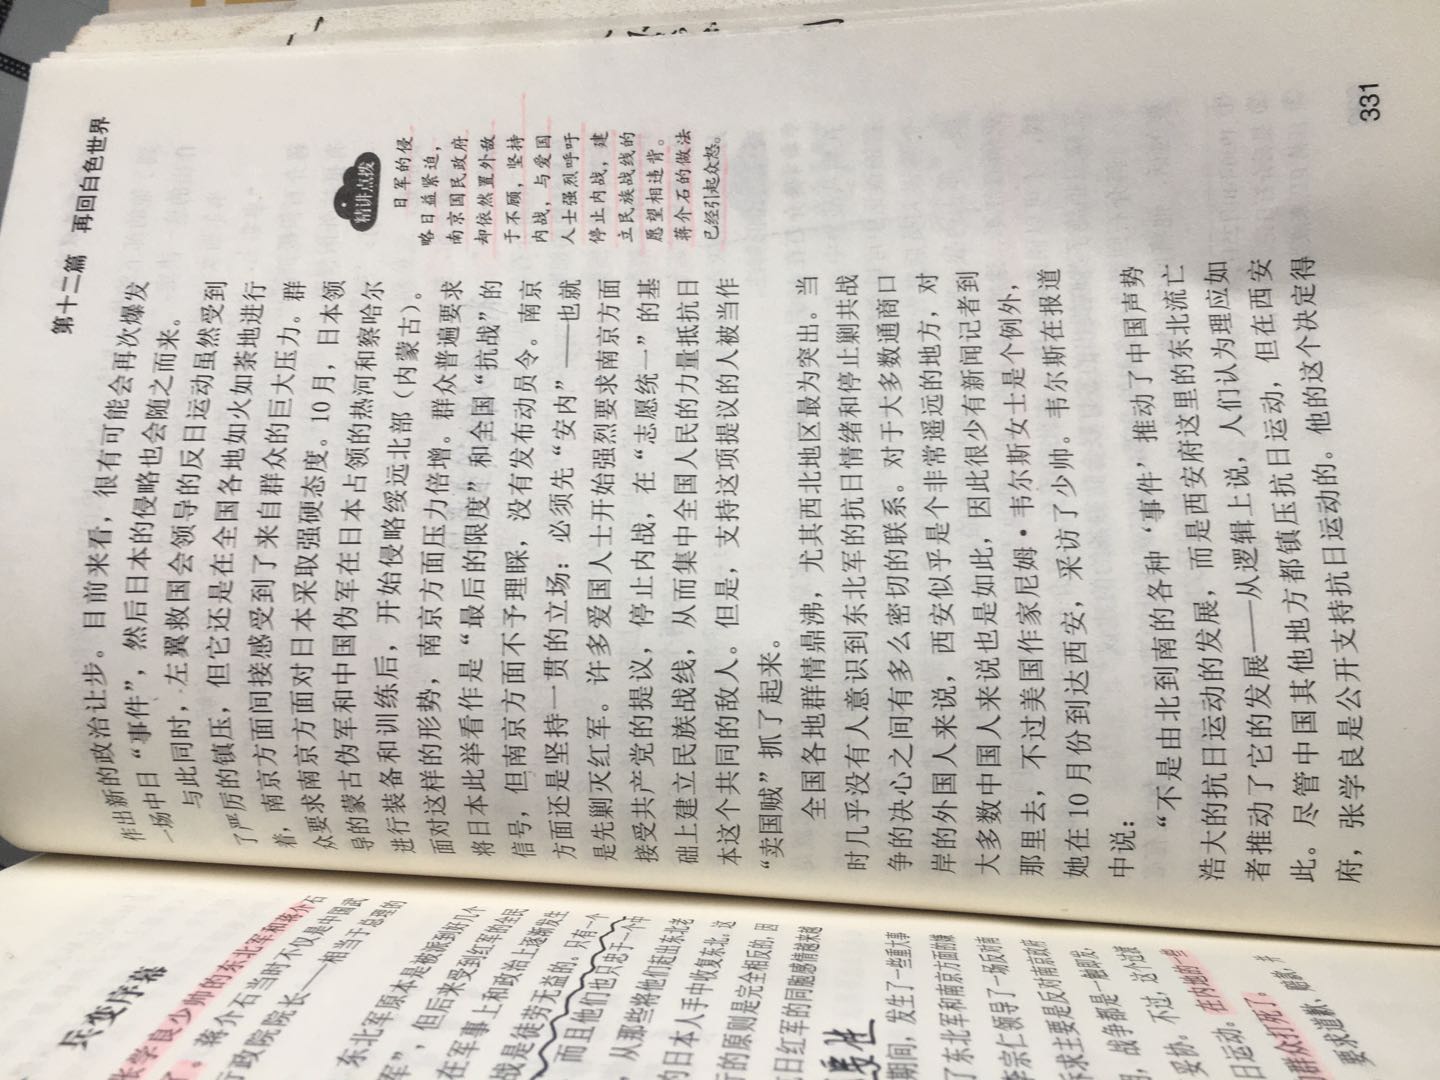 第十二篇 再回白色世界
作出新的政治让步。目前来看，很有可能会再次爆发
一场中日“事件”，然后日本的侵略也会随之而来。
与此同时，左翼救国会领导的反日运动虽然受到
了严厉的镇压，但它还是在全国各地如火如荼地进行
着，南京方面间接感受到了来自群众的巨大压力。群
众要求南京方面对日本采取强硬态度。10月，日本领
导的蒙古伪军和中国伪军在日本占领的热河和察哈尔
进行装备和训练后，开始侵略绥远北部（内蒙古）。
面对这样的形势，南京方面压力倍增。群众普遍要求
将日本此举看作是“最后的限度”和全国“抗战”的
信号，但南京方面不予理睬，没有发布动员令。南京
方面还是坚持一贯的立场：必须先“安内”——也就
是先剿灭红军。许多爱国人士开始强烈要求南京方面
接受共产党的提议，停止内战，在“志愿统一”的基
础上建立民族战线，从而集中全国人民的力量抵抗日
本这个共同的敌人。但是，支持这项提议的人被当作
“卖国贼”抓了起来。
全国各地群情鼎沸，尤其西北地区最为突出。当
时几乎没有人意识到东北军的抗日情绪和停止剿共战
争的决心之间有多么密切的联系。对于大多数通商口
岸的外国人来说，西安似乎是个非常遥远的地方，对
大多数中国人来说也是如此，因此很少有新闻记者到
那里去，不过美国作家尼姆·韦尔斯女士是个例外，
她在10月份到达西安，采访了少帅。韦尔斯在报道
中说：
“不是由北到南的各种‘事件’推动了中国声势
浩大的抗日运动的发展，而是西安府这里的东北流亡
者推动了它的发展——从逻辑上说，人们认为理应如
此。尽管中国其他地方都镇压抗日运动，但在西安
府，张学良是公开支持抗日运动的。他的这个决定得
精讲点拨
日军的侵
略日益紧迫，
南京国民政府
却依然置外敌
于不顾，坚持
内战，与爱国
人士强烈呼吁
停止内战，建
立民族战线的
愿望相违背。
蒋介石的做法
已经引起众怒。
331
兵变序幕
张学良少帅的东北军和蒋介石
蒋介石当时不仅是中国武
行政院院长——相当于总理的
东北军原本是被派到好几个
军”，但后来受到红军的全民
在军事上和政治上逐渐发生
战是徒劳无益的。只有一个
而且他们也只忠于一个中
从那些将他们赶出东北老
的日本人手中收复东北。这
行的原则是完全相反的，因
抗日红军的同胞感情越来越
期间，发生了一些重大事
了东北军和南京方面的嫌
李宗仁领导了一场反对南
诉求主要是反对南京政府
战争都是一触即发，
妥协。不过，这个过渡
日运动。在内地的一些
群众打死了。
要求道歉、赔款，并